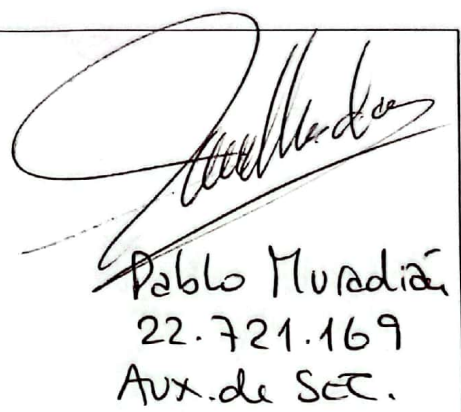 Pablo Muradián
22.721.169
Aux. de SEC.